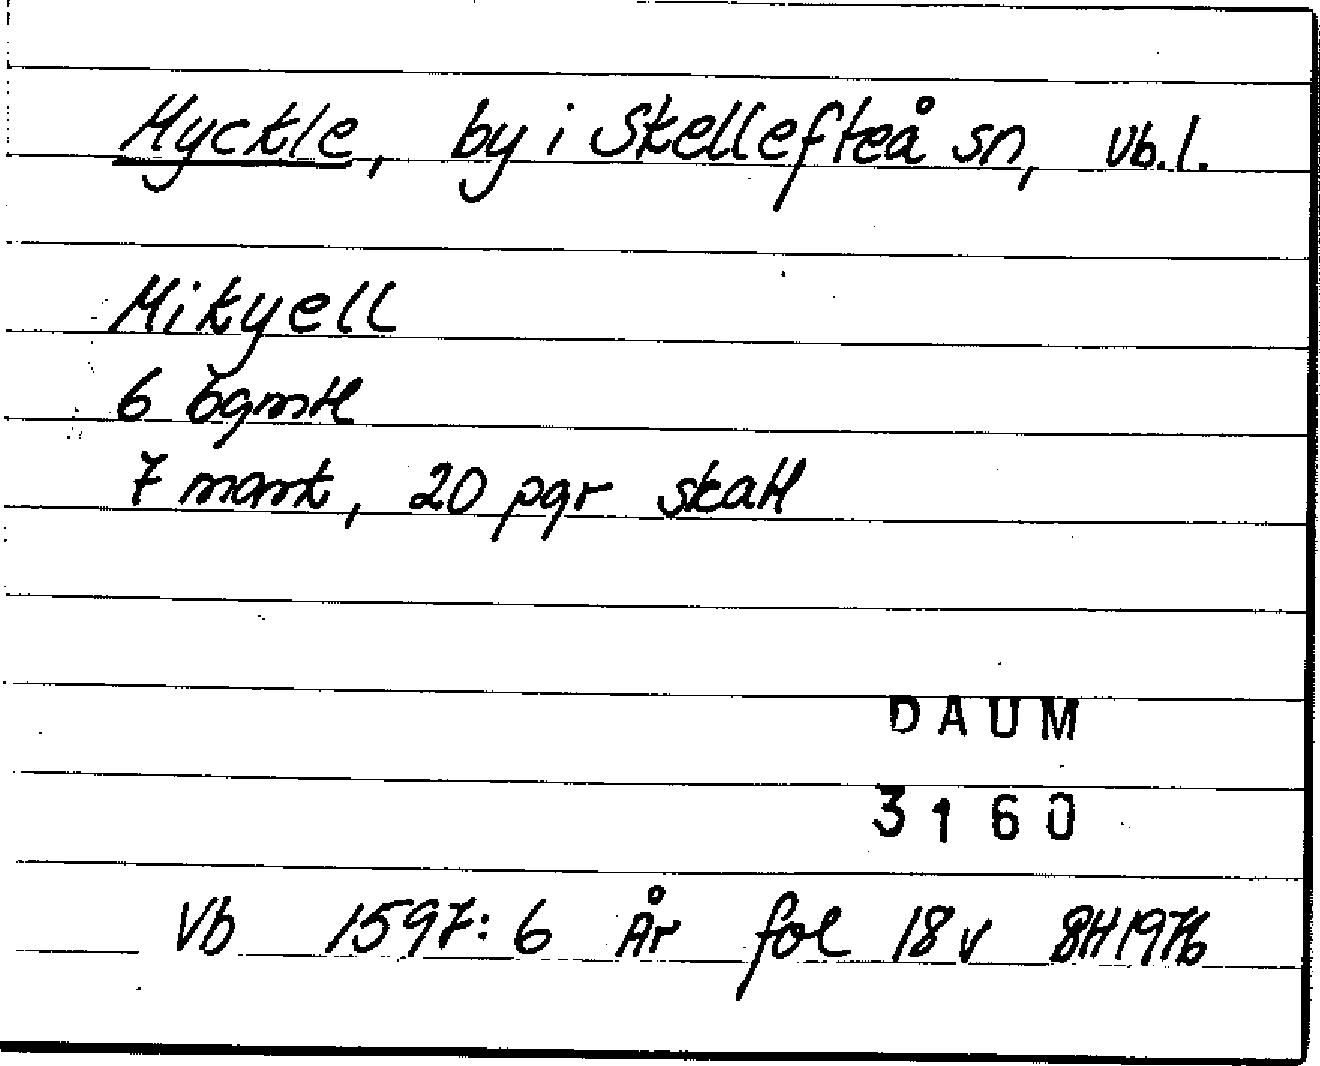 Myckle, by i Skellefteå sn, Vb.l.
Mikyell
6 bgmtl
7 mark, 20 pgr skatt
DAUM
3160
Vb 1597:6 År fol 18 v BH1976